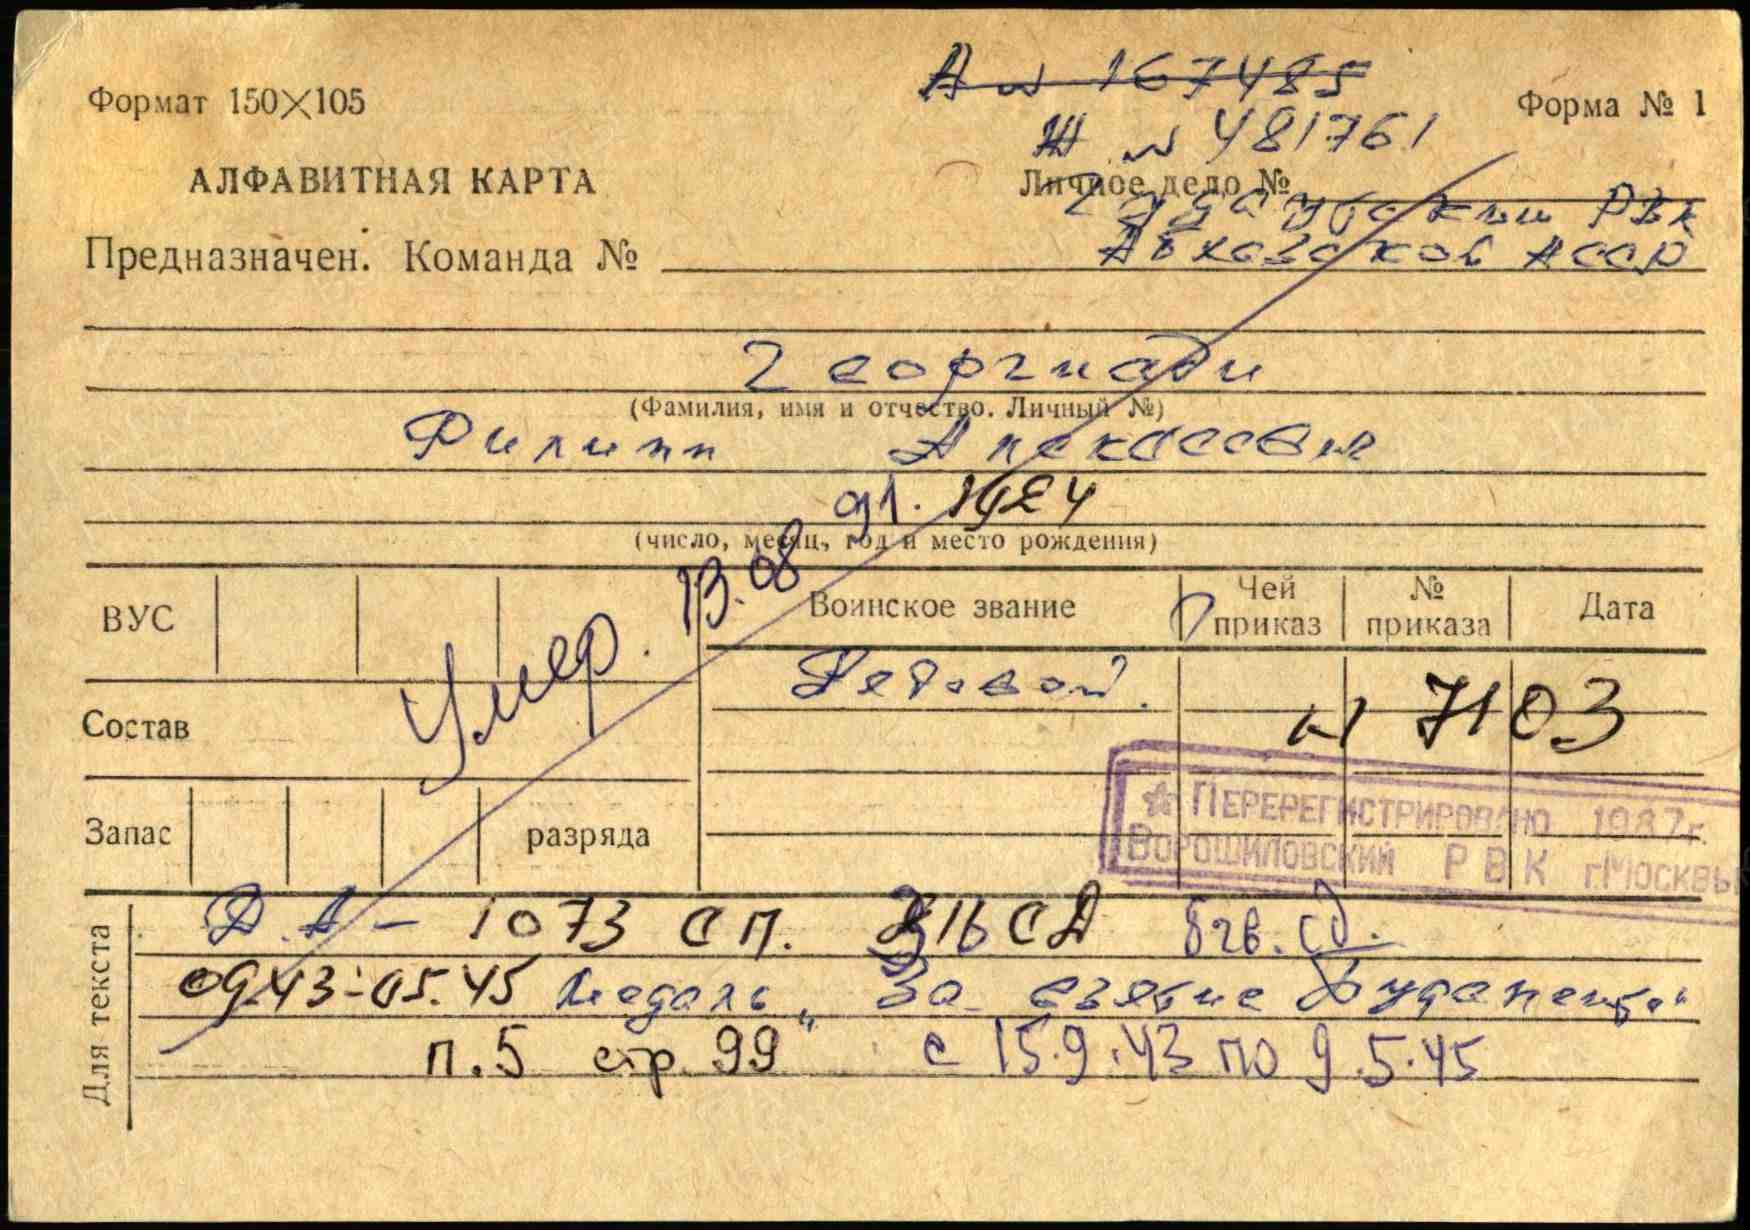 А № 167485
Формат 150×105
Форма № 1
Ж № 481761
АЛФАВИТНАЯ КАРТА
Личное дело №
РВК
Предназначен. Команда №
Абхазской АССР
Георгиади
(Фамилия, имя и отчество. Личный №)
Филипп
91. 1924
(число, месяц, год и место рождения)
ВУС
Умер. 13.08
Воинское звание
Чей приказ
№ приказа
Дата
Рядовой.
н 7103
Состав
Запас
разряда
Перерегистрировано 1987г.
Ворошиловский РВК г.Москвы
Для текста
Д.А – 1073 СП. 316 СД 8 гв. сд.
09.43-05.45 Медаль "За взятие Будапешта"
п.5 стр. 99 с 15.9.43 по 9.5.45